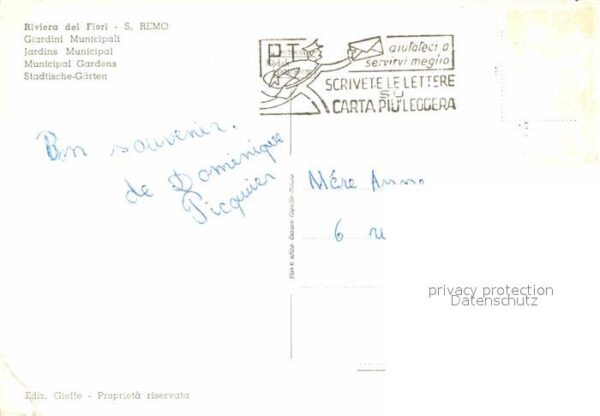 Riviera dei Fiori - S. REMO
Giardini Municipali
Jardins Municipal
Municipal Gardens
Stadtische-Gärten
P.T.
aiutateci a
servirvi meglio
SCRIVETE LE LETTERE
SU
CARTA PIU' LEGGERA
Bon souvenir.
de Dominique
Picquier
Mére Anna
6
privacy protection
Datenschutz
Ediz. Gieffe - Proprietà riservata